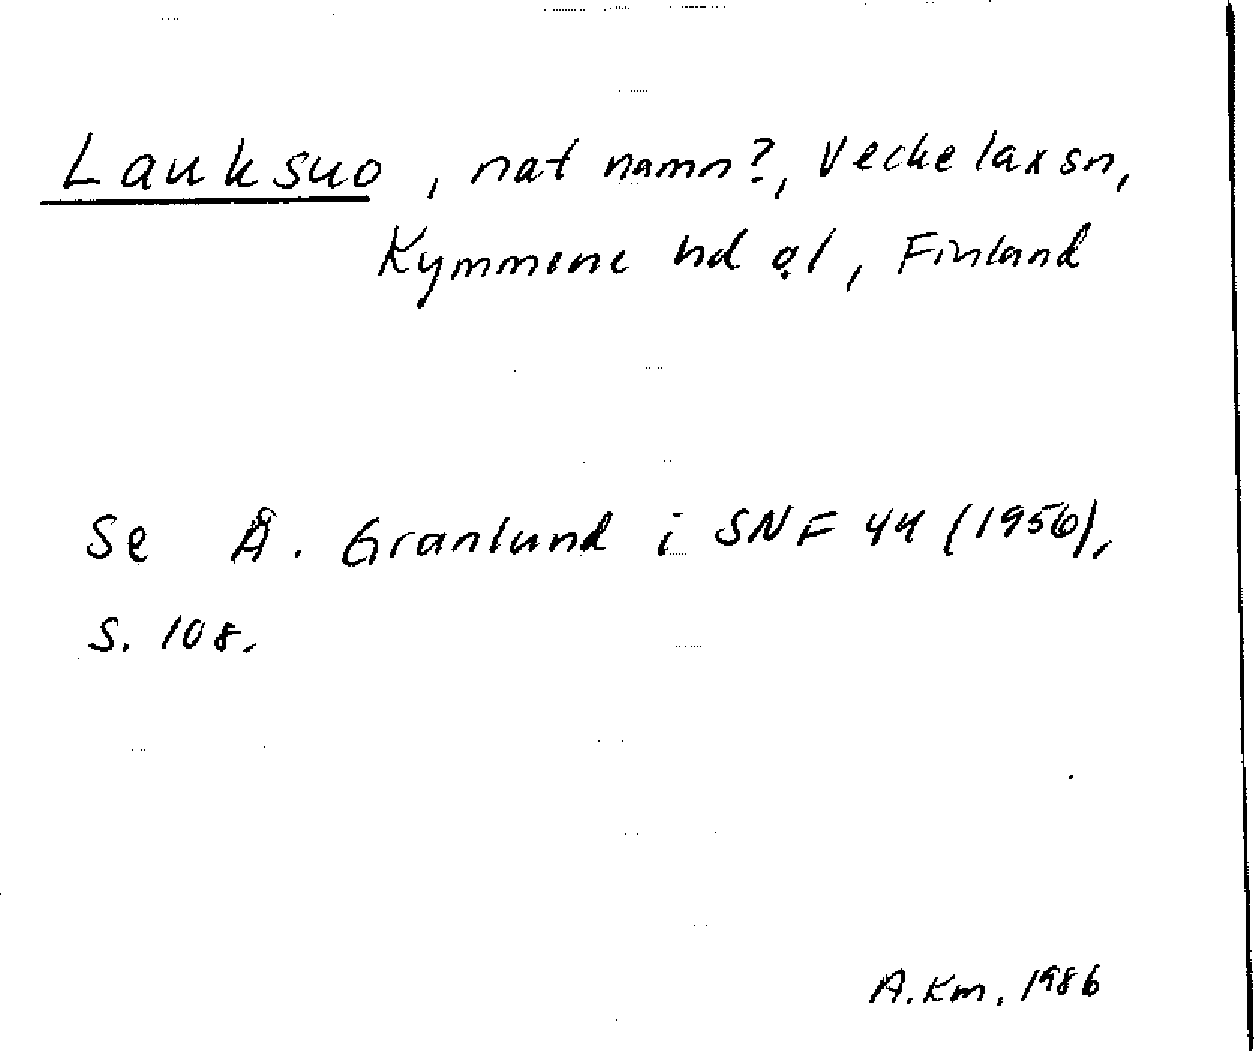 Lauksuo, nat namn?, Veckelax sn,
Kymmene hd öl, Finland
Se Å. Granlund i SNF 44 (1956),
s. 108.
A.Km. 1986